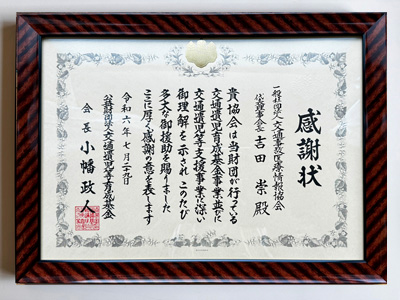 感謝状
一般社団法人交通事故医療情報協会
代表理事会長 吉田 崇 殿
貴協会は当財団が行っている
交通遺児育成基金事業並びに
交通遺児等支援事業に深い
御理解を示されこのたび
多大な御援助を賜りました
ここに厚く感謝の意を表します
令和六年七月二九日
公益財団法人交通遺児等育成基金
会長 小幡政人